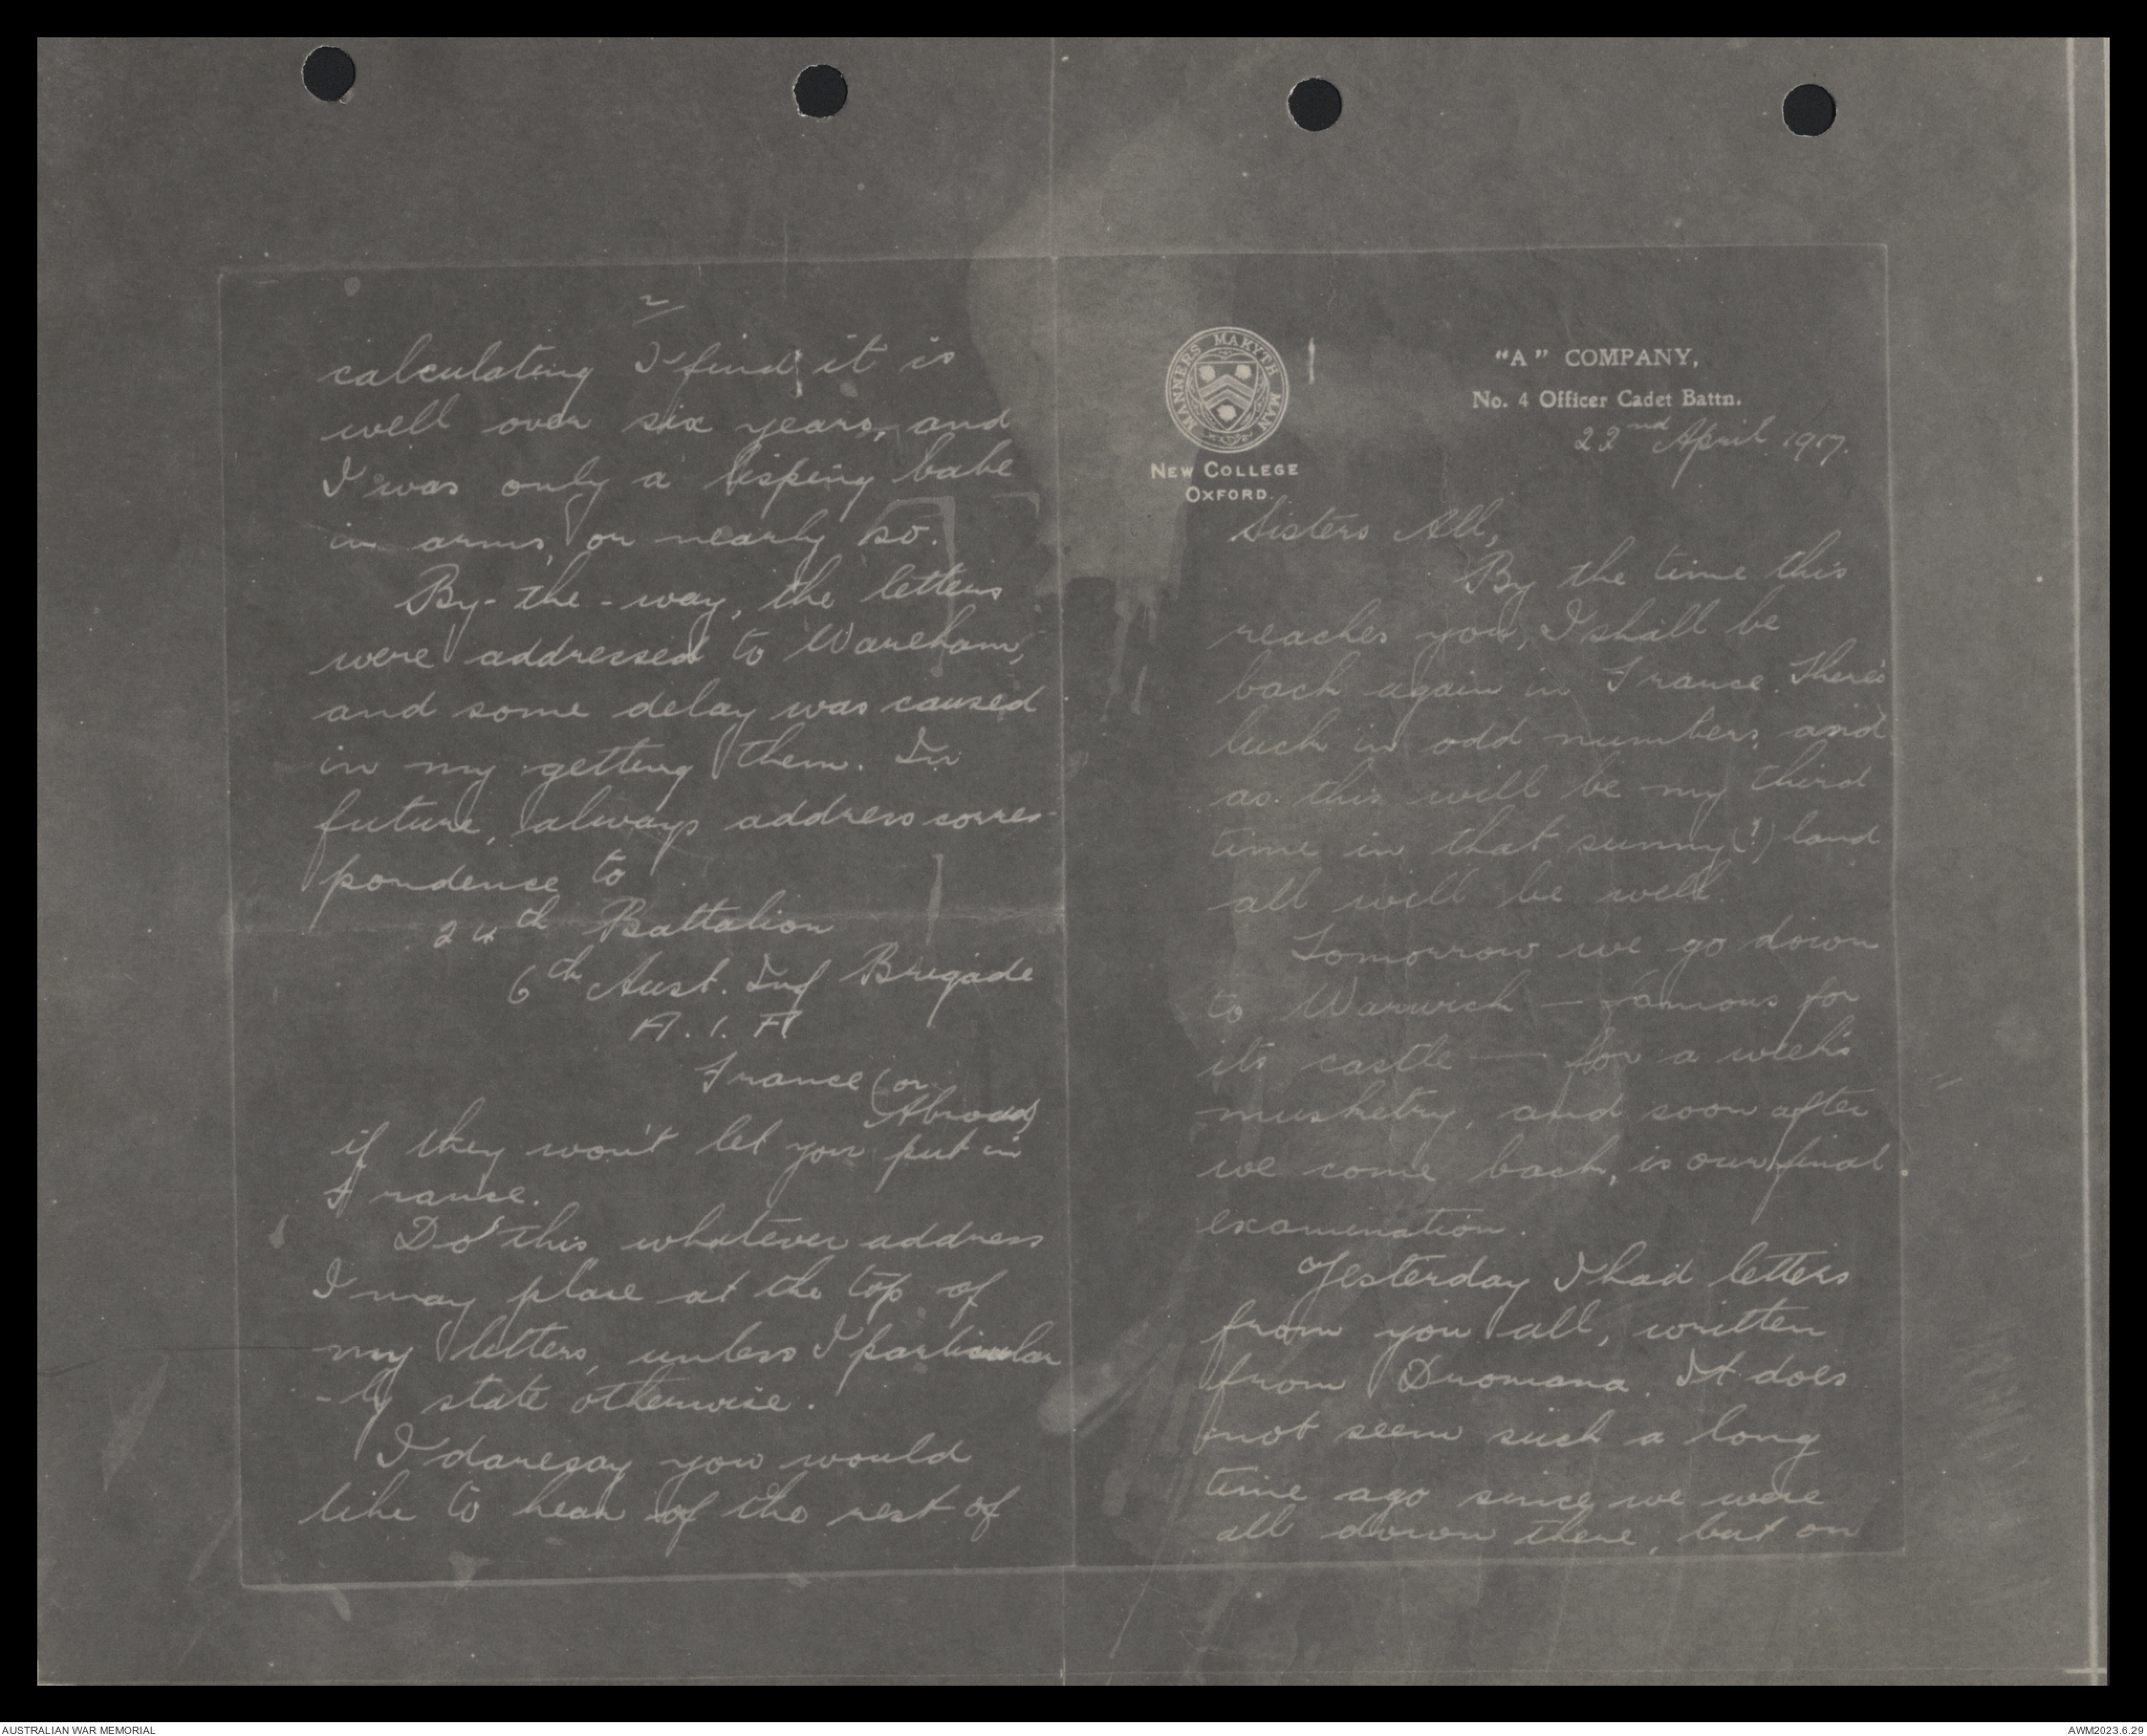 MANNERS MAKYTH MAN
NEW COLLEGE
OXFORD.
"A" COMPANY,
No. 4 Officer Cadet Battn.
22nd April 1917.
Sisters All,
By the time this
reaches you, I shall be
back again in France. There's
luck in odd numbers, and
as this will be my third
time in that sunny (?) land
all will be well.
Tomorrow we go down
to Warwick — famous for
its castle — for a week's
musketry, and soon after
we come back, is our final
examination.
Yesterday I had letters
from you all, written
from Dromana. It does
not seem such a long
time ago since we were
all down there, but on
2
calculating I find it is
well over six years, and
I was only a lisping babe
in arms, or nearly so.
By-the-way, the letters
were addressed to Wareham,
and some delay was caused
in my getting them. In
future, always address corres-
pondence to
24th Battalion
6th Aust. Inf Brigade
A.I.F
France (or
Abroad)
if they won't let you put in
France.
Do this whatever address
I may place at the top of
my letters, unless I particular
-ly state otherwise.
I daresay you would
like to hear of the rest of
AUSTRALIAN WAR MEMORIAL
AWM2023.6.29